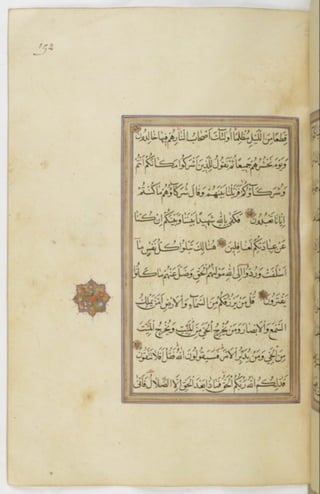 152
قِطَعًا مِنَ اللَّيْلِ مُظْلِمًا أُولَئِكَ أَصْحَابُ النَّارِ هُمْ فِيهَا خَالِدُونَ
وَيَوْمَ نَحْشُرُهُمْ جَمِيعًا ثُمَّ نَقُولُ لِلَّذِينَ أَشْرَكُوا مَكَانَكُمْ أَنْتُمْ
وَشُرَكَاؤُكُمْ فَزَيَّلْنَا بَيْنَهُمْ وَقَالَ شُرَكَاؤُهُمْ مَا كُنْتُمْ
إِيَّانَا تَعْبُدُونَ فَكَفَى بِاللَّهِ شَهِيدًا بَيْنَنَا وَبَيْنَكُمْ إِنْ كُنَّا
عَنْ عِبَادَتِكُمْ لَغَافِلِينَ هُنَالِكَ تَبْلُوا كُلُّ نَفْسٍ مَا
أَسْلَفَتْ وَرُدُّوا إِلَى اللَّهِ مَوْلَاهُمُ الْحَقِّ وَضَلَّ عَنْهُمْ مَا كَانُوا
يَفْتَرُونَ قُلْ مَنْ يَرْزُقُكُمْ مِنَ السَّمَاءِ وَالْأَرْضِ أَمَّنْ يَمْلِكُ
السَّمْعَ وَالْأَبْصَارَ وَمَنْ يُخْرِجُ الْحَيَّ مِنَ الْمَيِّتِ وَيُخْرِجُ الْمَيِّتَ
مِنَ الْحَيِّ وَمَنْ يُدَبِّرُ الْأَمْرَ فَسَيَقُولُونَ اللَّهُ فَقُلْ أَفَلَا تَتَّقُونَ
فَذَلِكُمُ اللَّهُ رَبُّكُمُ الْحَقُّ فَمَاذَا بَعْدَ الْحَقِّ إِلَّا الضَّلَالُ فَأَنَّى